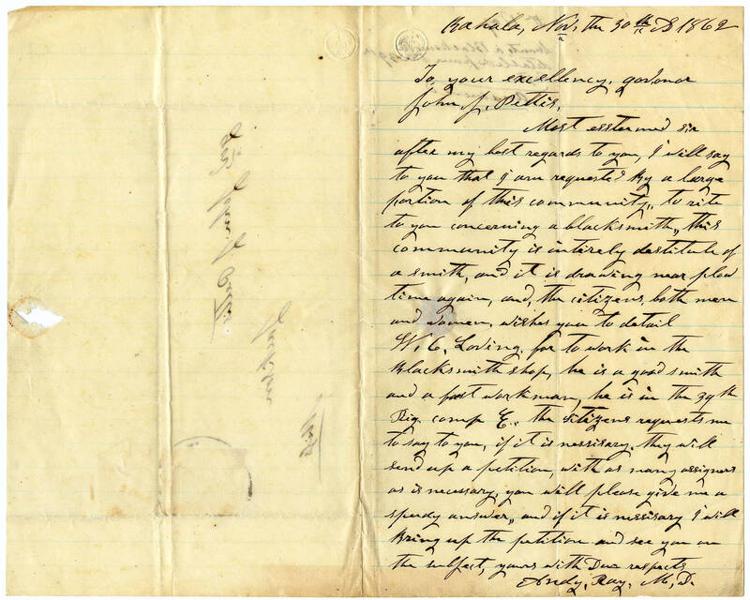 Kahala, Nov, the 30th AD 1862
To, your excellency, govonor
John J, Pettis,
Most esstermed sir
after my best regards to you, I will say
to you that I am requested By a large
portion of this community, to rite
to you concerning a blacksmith, this
community is intirely destitute of
a smith, and it is drawing near plow
time again, and, the citizens both men
and women, wishes you to detail
W, C, Loving for to work in the
Blacksmith shop, he is a good smith
and a fast workman, he is in the 39th
Rig, comp E., the citizens requests me
to say to you, if it is nessisary, they will
send up a petition, with as many assigners
as is necessary, you will please give me a
speedy answer, and if it is nissisary I will
Bring up the petition and see you on
the subject, yours with Due respects
Andy, Ray, M, D.